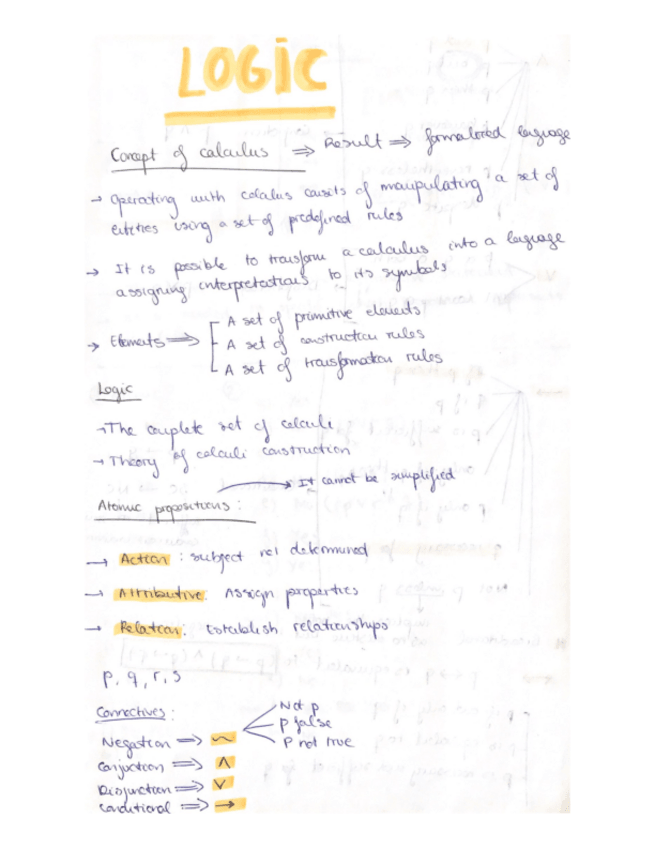 LOGIC
Concept of calculus ⇒ Result ⇒ formalized language
→ Operating with calculus consists of manipulating a set of
entities using a set of predefined rules
→ It is possible to transform a calculus into a language
assigning interpretations to its symbols
→ Elements ⇒ [ A set of primitive elements
A set of construction rules
A set of transformation rules
Logic
→ The complete set of calculi
→ Theory of calculi construction
→ It cannot be simplified
Atomic propositions:
→ Action: subject not determined
→ Attributive: Assign properties
→ Relation: Establish relationships
p, q, r, s
Connectives:
Not p
p false
p not true
Negation ⇒ ~
Conjuction ⇒ ∧
Disjunction ⇒ ∨
Conditional ⇒ →